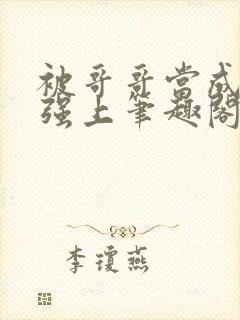 被哥哥当成
强上笔趣阁
李琼燕